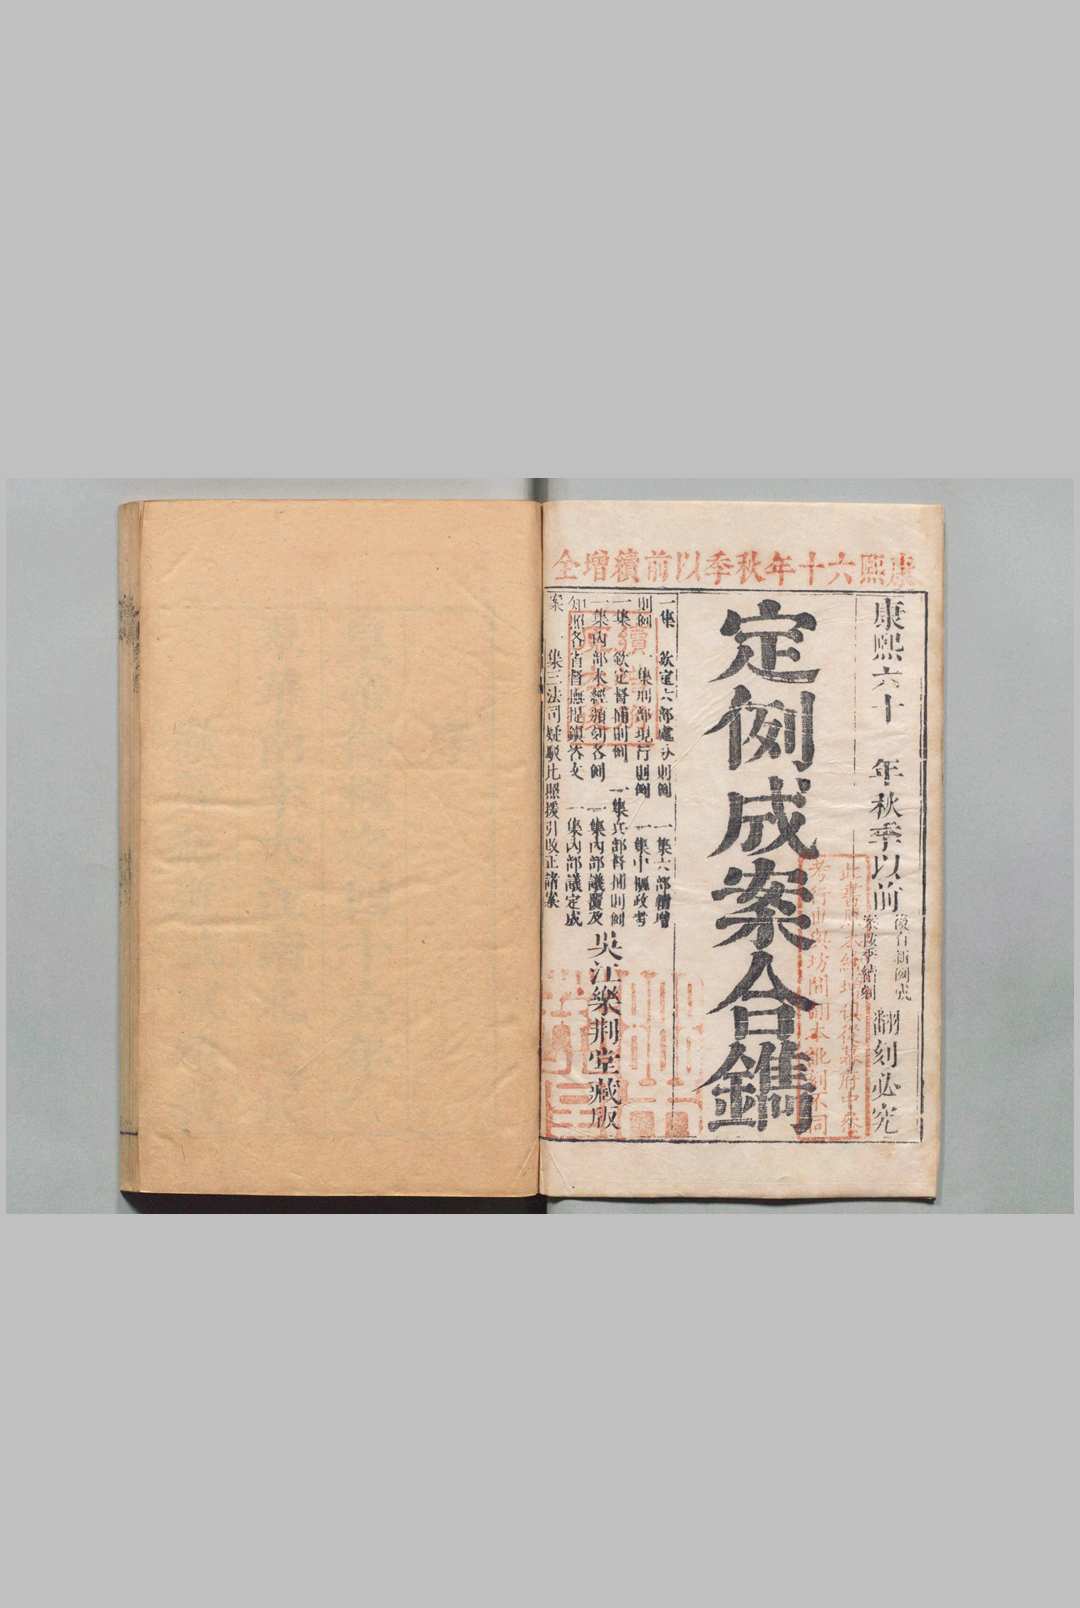 康熙六十年秋季以前續增全
康熙六十 年秋季以前
後有新例成
案按季續刻
翻刻必究
定例成案合鐫
一集 欽定六部處分則例 一集六部續增
則例 一集刑部現行則例 一集中樞政考
一集 欽定督捕則例 一集兵部督捕則例
一集內部未經頒刻各例 一集內部議覆及
知照各省督撫提鎮咨文 一集內部議定成
案 一集三法司疑駁比照援引改正諸案
吳江樂荆堂藏版